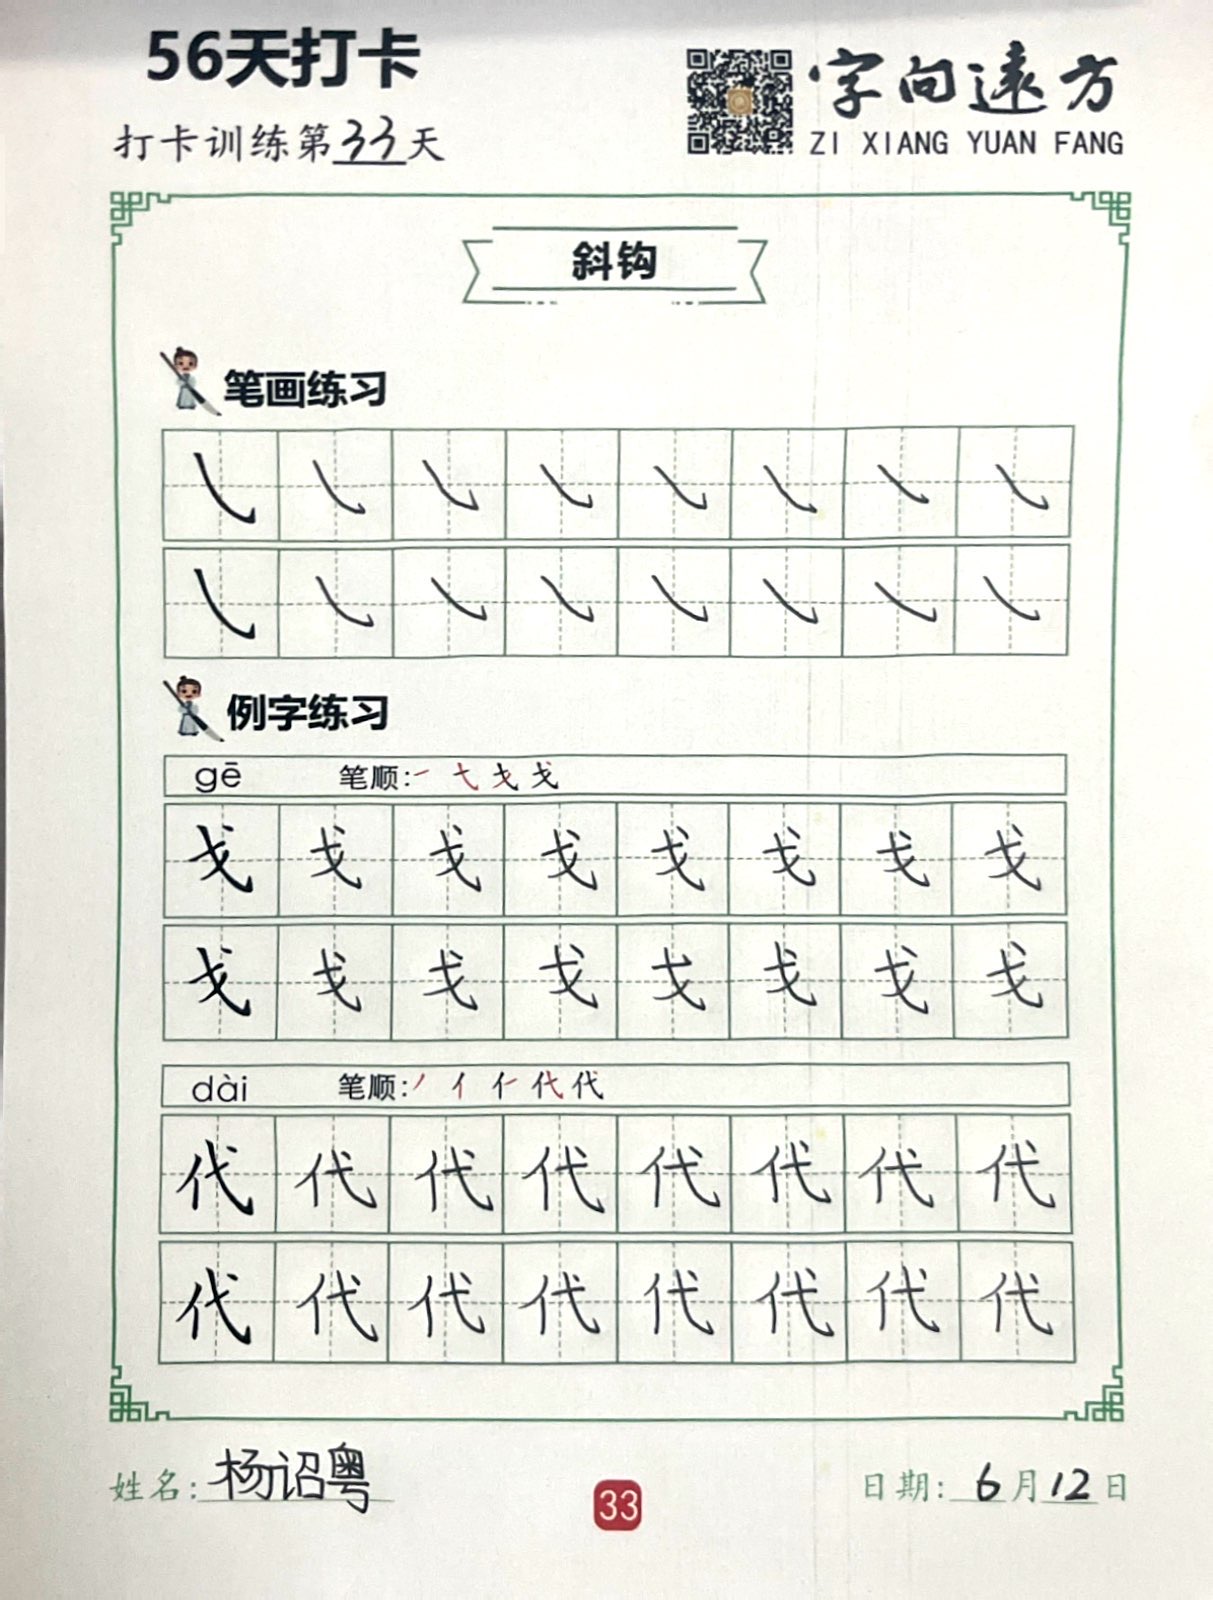 56天打卡
字向遠方
打卡训练第33天
ZI XIANG YUAN FANG
斜钩
笔画练习
㇂ ㇂ ㇂ ㇂ ㇂ ㇂ ㇂ ㇂
㇂ ㇂ ㇂ ㇂ ㇂ ㇂ ㇂ ㇂
例字练习
gē 笔顺:一 弋 戈 戈
戈 戈 戈 戈 戈 戈 戈 戈
戈 戈 戈 戈 戈 戈 戈 戈
dài 笔顺:丿 亻 仁 代 代
代 代 代 代 代 代 代 代
代 代 代 代 代 代 代 代
姓名:杨诏粤
33
日期:6月12日